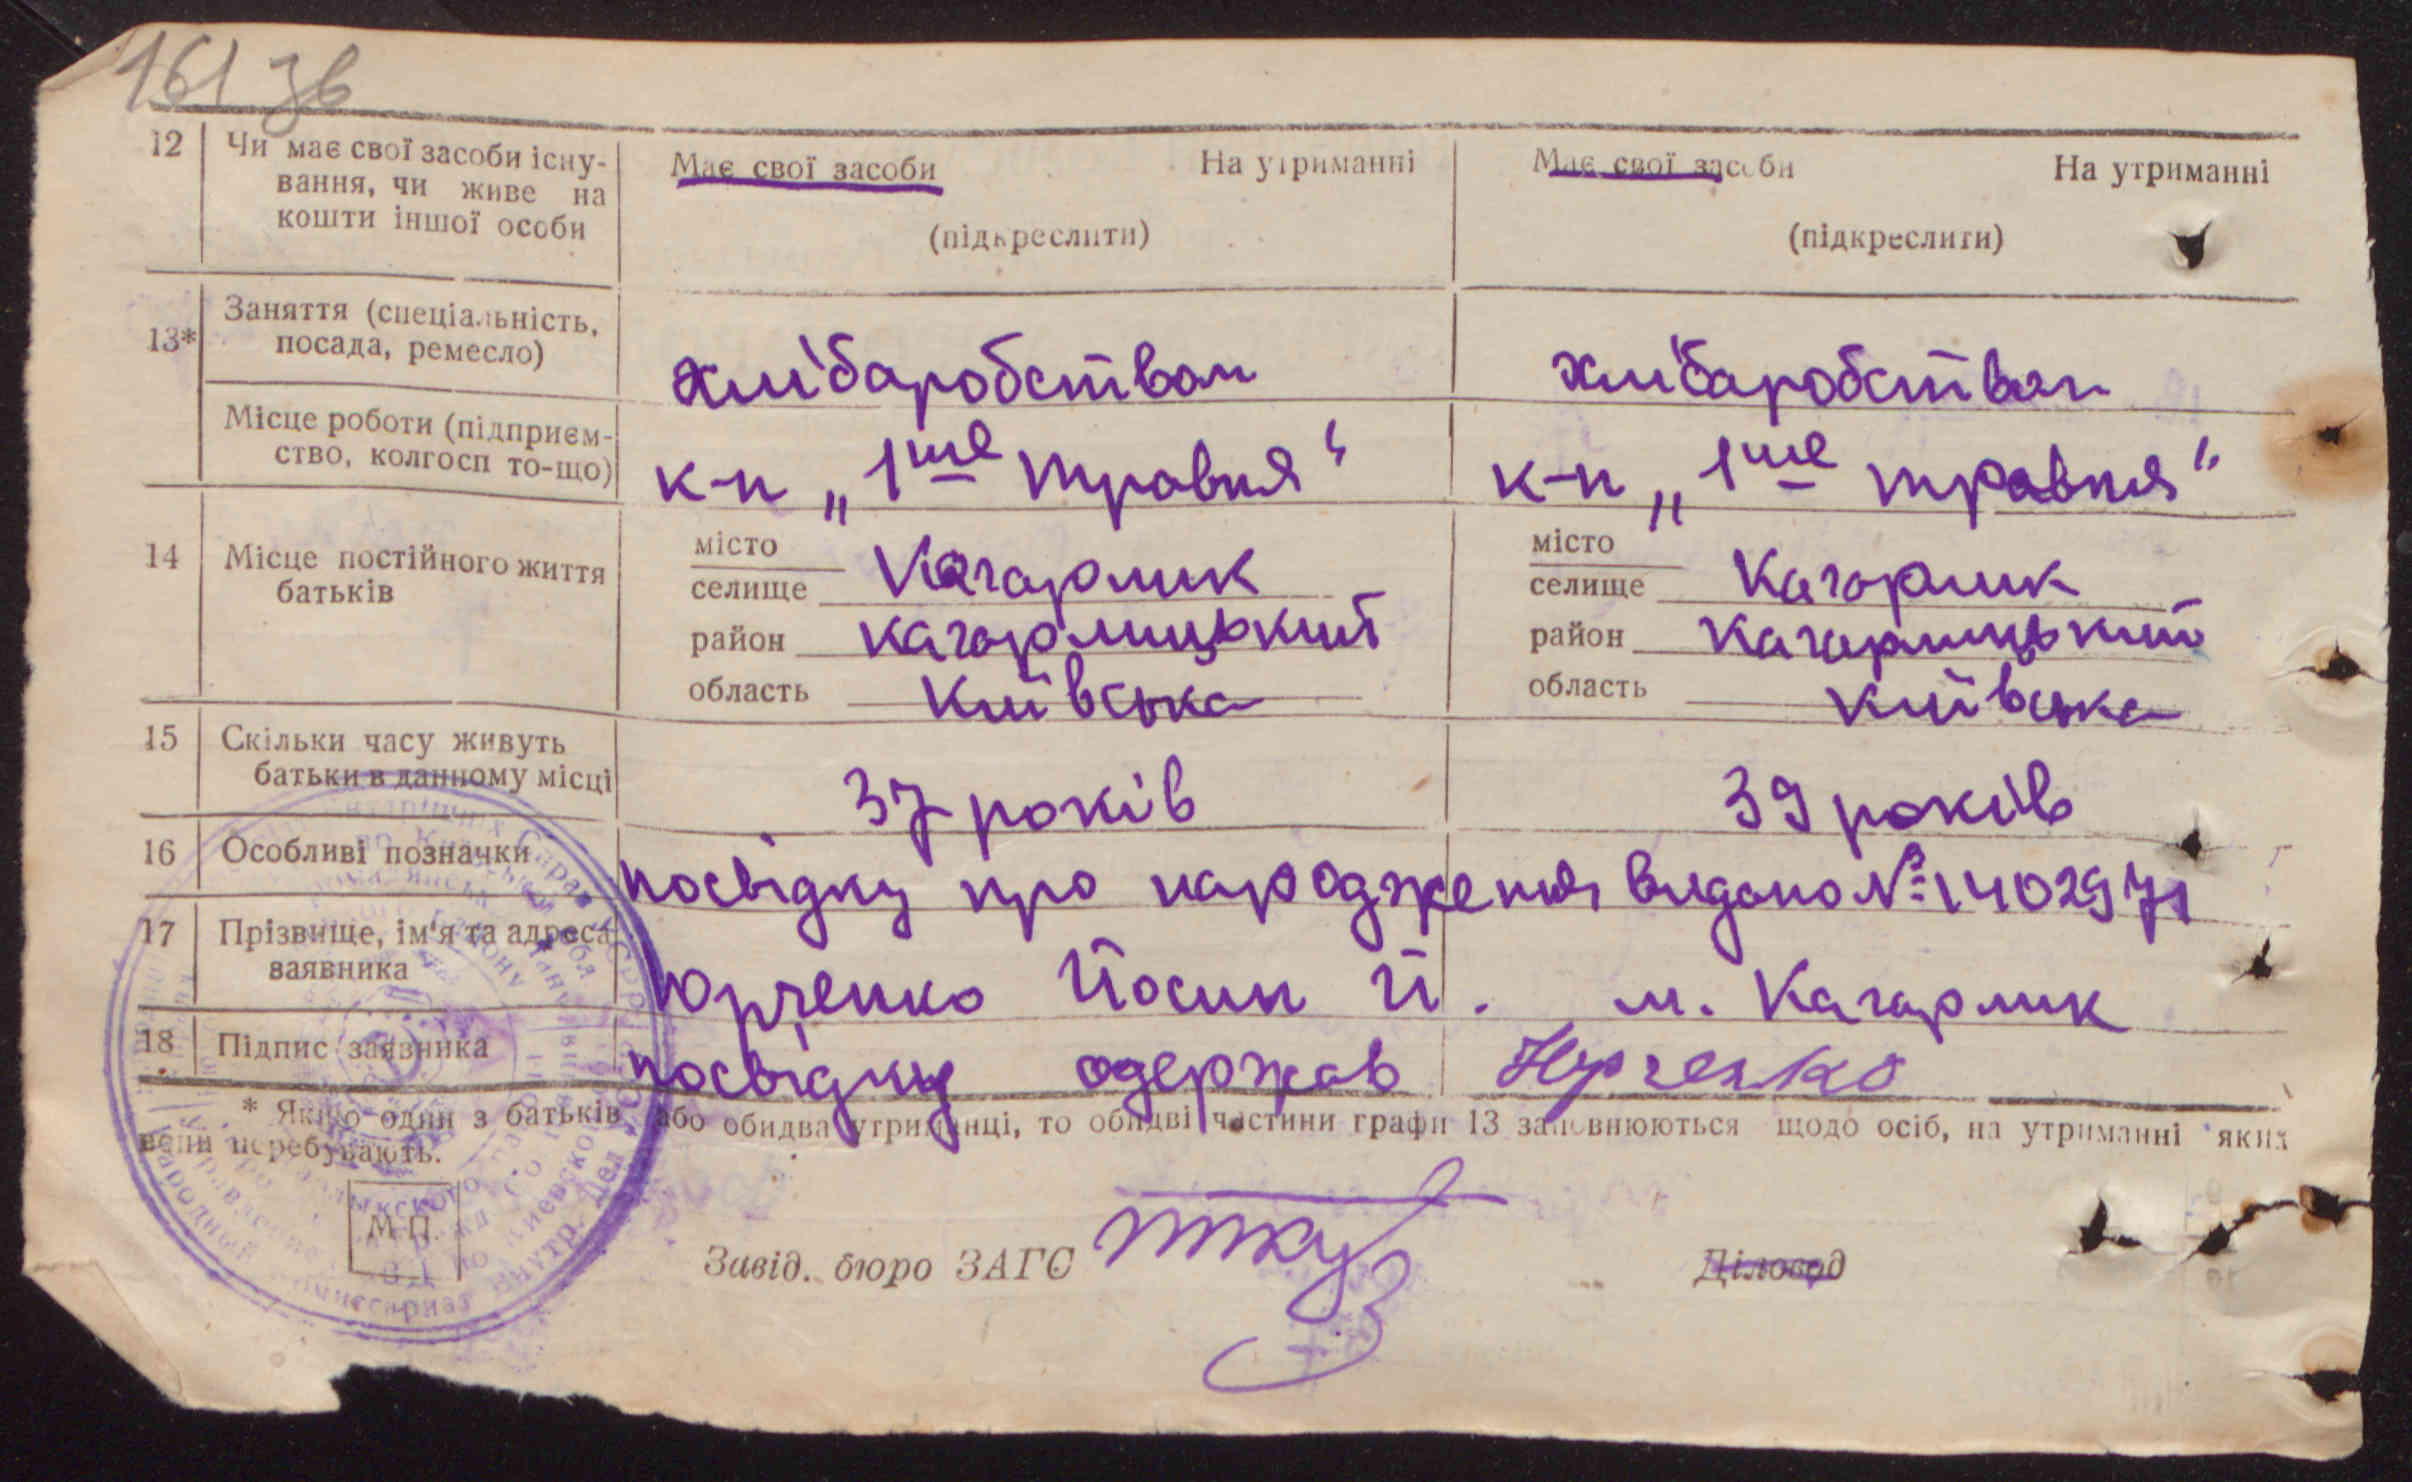 161 зв
12 Чи має свої засоби існу- Має свої засоби На утриманні Має свої засоби На утриманні
вання, чи живе на
кошти іншої особи (підкреслити) (підкреслити)
13* Заняття (спеціальність,
посада, ремесло) хлібаробством хлібаробством
Місце роботи (підприєм-
ство, колгосп то-що) к-п „1ше травня“ к-п „1ше травня“
14 Місце постійного життя
батьків
місто місто
селище Кагарлик селище Кагарлик
район Кагарлицький район Кагарлицький
область Київська область Київська
15 Скільки часу живуть
батьки в данному місці 37 років 39 років
16 Особливі позначки посвідку про народження видано № 1402971
17 Прізвище, ім'я та адреса
заявника Юрченко Йосип Й. м. Кагарлик
18 Підпис заявника посвідку одержав Юрченко
* Якщо один з батьків або обидва утриманці, то обидві частини графи 13 заповнюються щодо осіб, на утриманні яких
вони перебувають.
М П
Завід. бюро ЗАГС Діловод